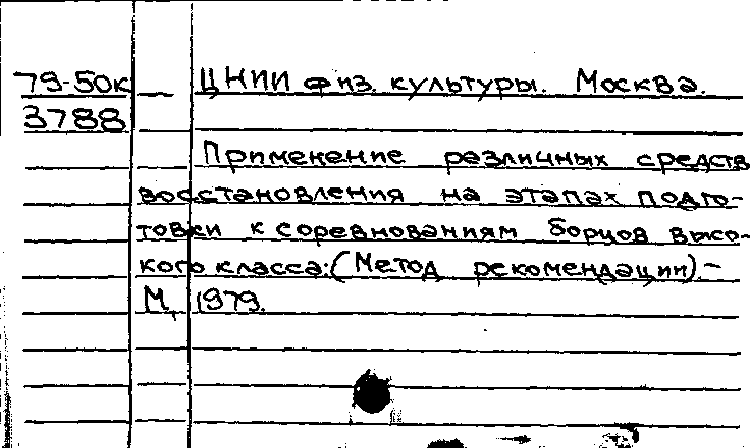 79-50к — ЦНИИ физ. культуры. Москва.
3788
Применение различных средств
восстановления на этапах подго-
товки к соревнованиям борцов высо-
кого класса: (Метод рекомендации).-
М, 1979.